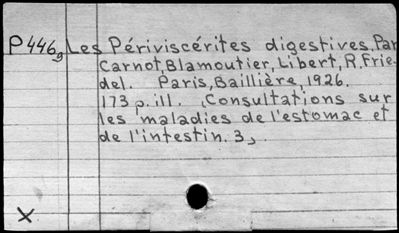 P446g Les Périviscérites digestives. Par
Carnot, Blamoutier, Libert, R. Frie-
del. Paris, Baillière, 1926.
173 p. ill. (Consultations sur
les maladies de l'estomac et
de l'intestin. 3)
X